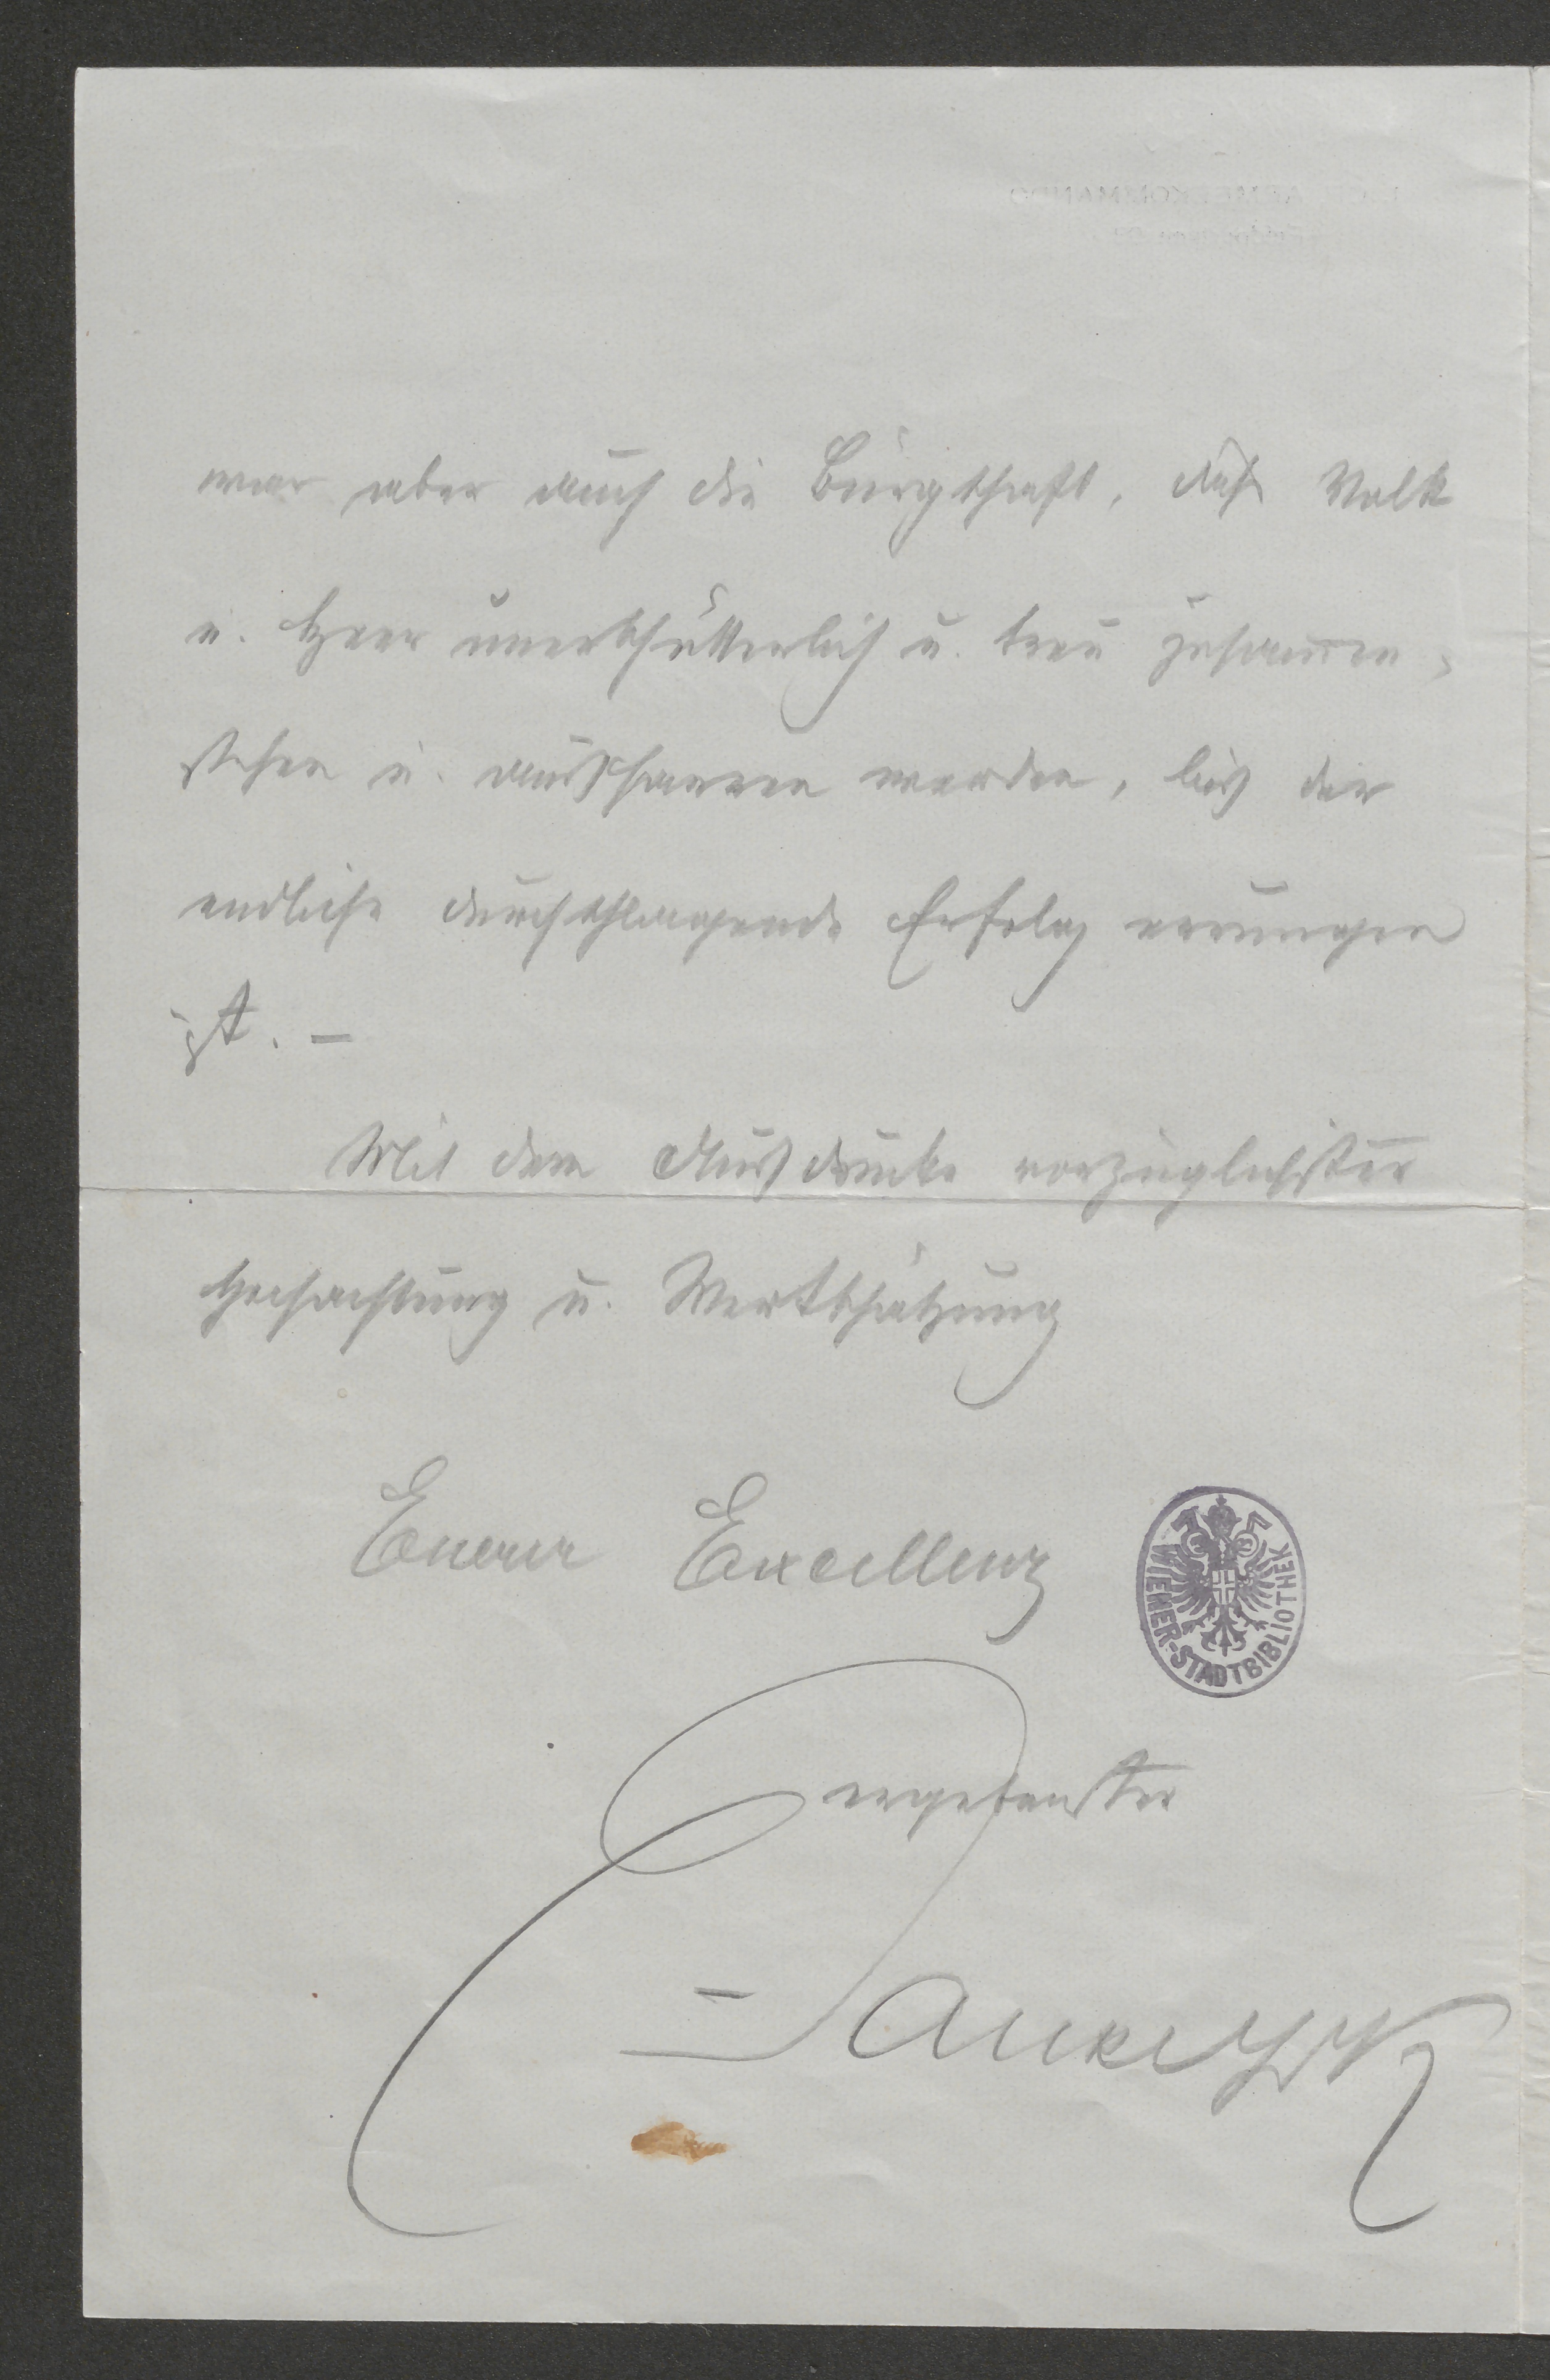 war aber auch die Bürgschaft, daß Volk
u. Heer unerschütterlich u. treu zusammen-
stehen u. ausharren werden, bis der
endliche durchschlagende Erfolg errungen
ist. –
Mit dem Ausdrucke vorzüglichster
Hochachtung u. Wertschätzung
Euerer Excellenz
WIENER-STADTBIBLIOTHEK
ergebenster
Dankl